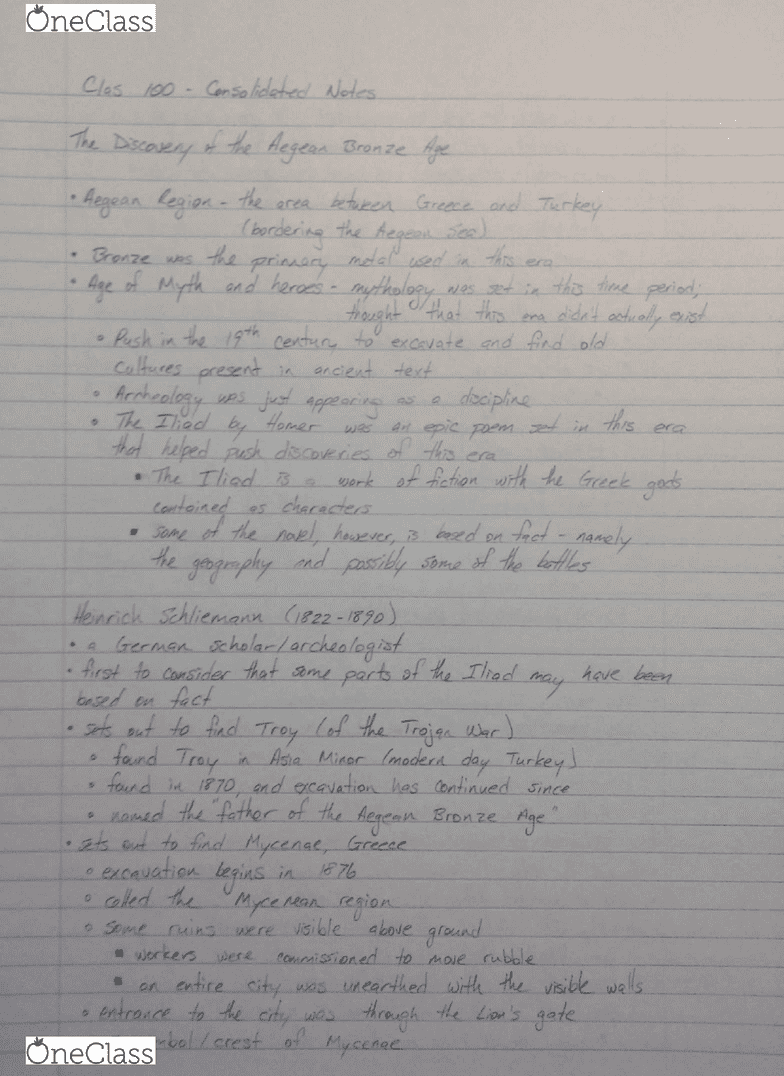 OneClass
Clas 100 - Consolidated Notes
The Discovery of the Aegean Bronze Age
• Aegean Region - the area between Greece and Turkey
(bordering the Aegean Sea)
• Bronze was the primary metal used in this era
• Age of Myth and heroes - mythology was set in this time period;
thought that this era didn't actually exist
• Push in the 19th century to excavate and find old
cultures present in ancient text
• Archeology was just appearing as a discipline
• The Iliad by Homer was an epic poem set in this era
that helped push discoveries of this era
▪ The Iliad is a work of fiction with the Greek gods
contained as characters
▪ some of the novel, however, is based on fact - namely
the geography and possibly some of the battles
Heinrich Schliemann (1822-1890)
• a German scholar/archeologist
• first to consider that some parts of the Iliad may have been
based on fact
• sets out to find Troy (of the Trojan War)
◦ found Troy in Asia Minor (modern day Turkey)
◦ found in 1870, and excavation has continued since
◦ named the "father of the Aegean Bronze Age"
• sets out to find Mycenae, Greece
◦ excavation begins in 1876
◦ called the Mycenean region
◦ some ruins were visible above ground
▪ workers were commissioned to move rubble
▪ an entire city was unearthed with the visible walls
◦ entrance to the city was through the Lion's gate
mbol/crest of Mycenae
OneClass